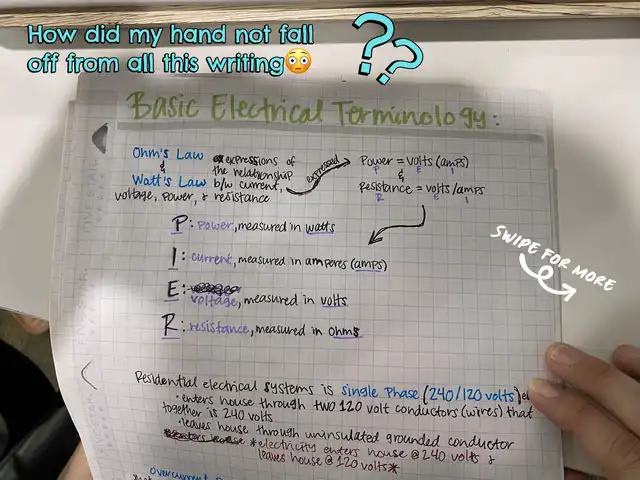 How did my hand not fall
off from all this writing😳
??
Basic Electrical Terminology:
Ohm's Law
&
Watt's Law
expressions of
the relationship
b/w current,
voltage, power, & resistance
expressed
Power = volts (amps)
P E I
&
Resistance = volts/amps
R E I
P: power, measured in watts
I: current, measured in amperes (amps)
E: voltage, measured in volts
R: resistance, measured in ohms
SWIPE FOR MORE
FIVE STAR
Residential electrical systems is single phase (240/120 volts) el
• enters house through two 120 volt conductors (wires) that
together is 240 volts
• leaves house through uninsulated grounded conductor
*electricity enters house @ 240 volts &
leaves house @ 120 volts*
overcurrent